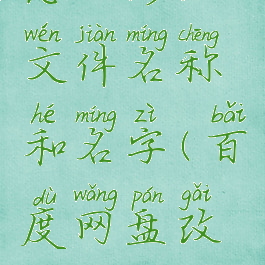 wén jiàn míng chēng
文件名称
hé míng zì bǎi
和名字(百
dù wǎng pán gǎi
度网盘改